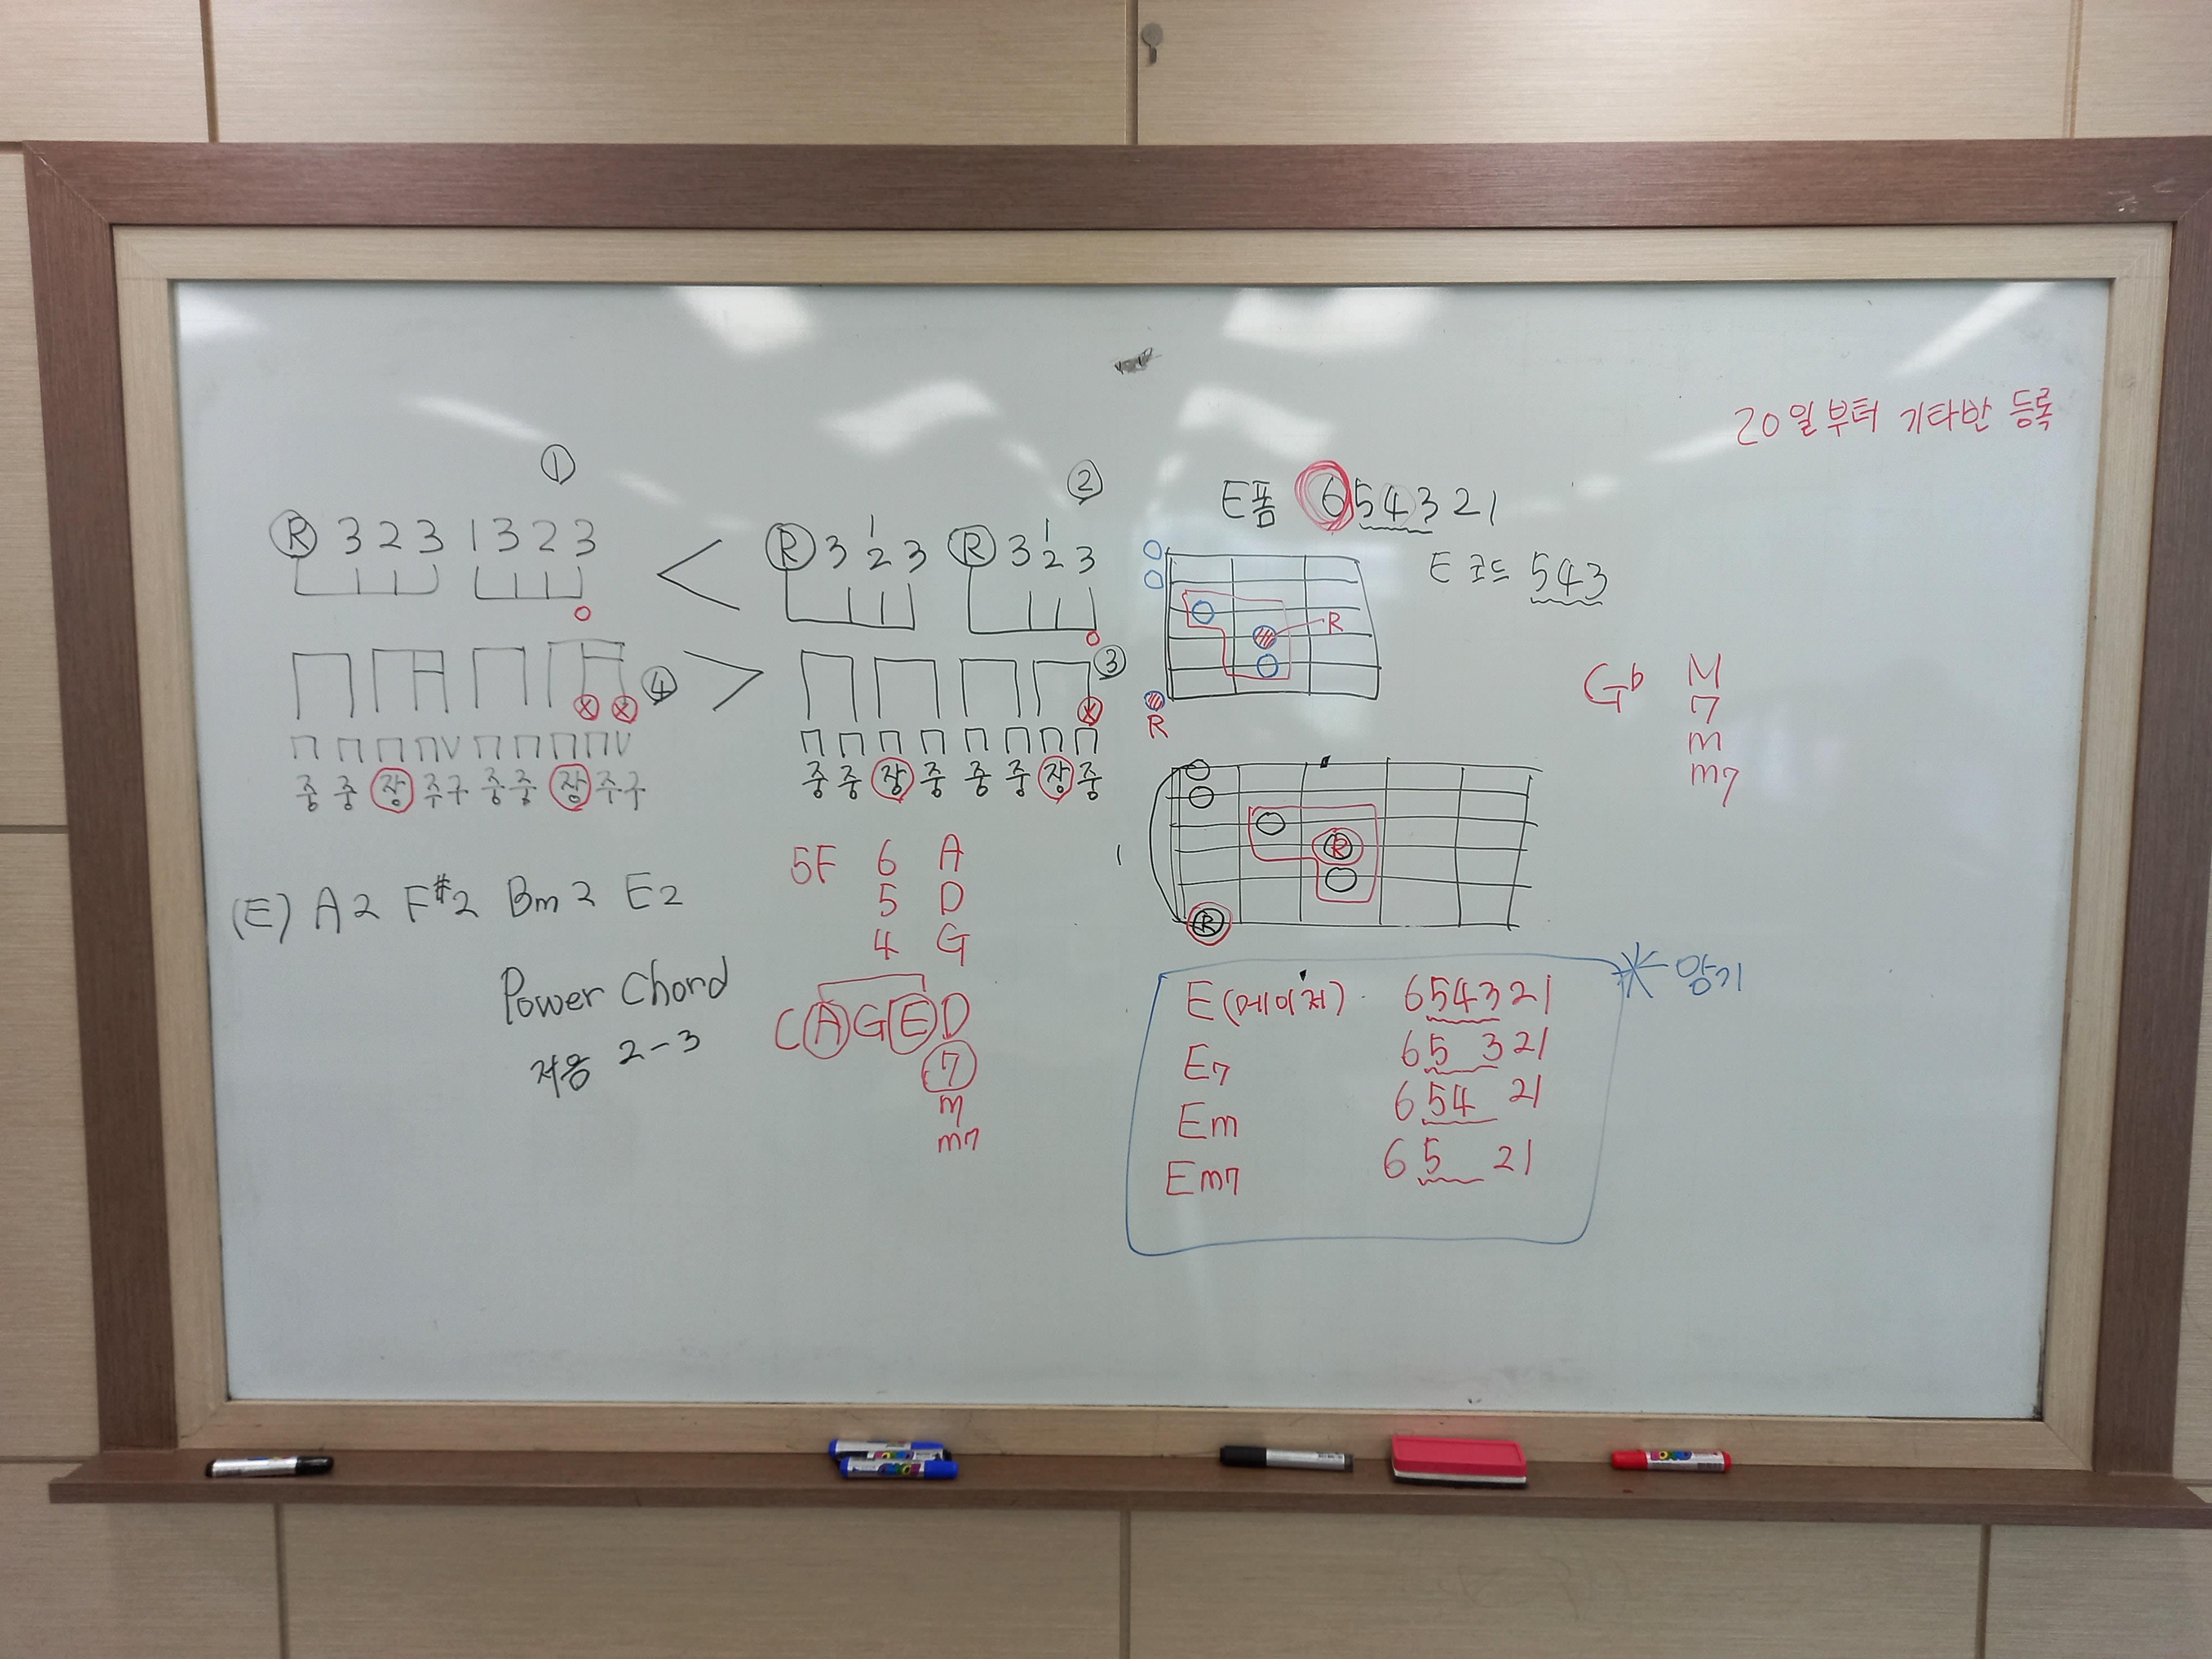 20일부터 기타반 등록
①
R 3 2 3 1 3 2 3
<
②
R 3 1 2 3 R 3 1 2 3
④
>
③
중 중 장 주구 중 중 장 주구
중 중 장 중 중 중 장 중
(E) A2 F#2 Bm2 E2
Power Chord
저음 2-3
5F 6 A
5 D
4 G
CAGED
7
m
m7
E폼 654321
E코드 543
R
R
R
R
1
G♭ M
7
m
m7
E(메이저) 654321
E7 65 321
Em 654 21
Em7 65 21
암기